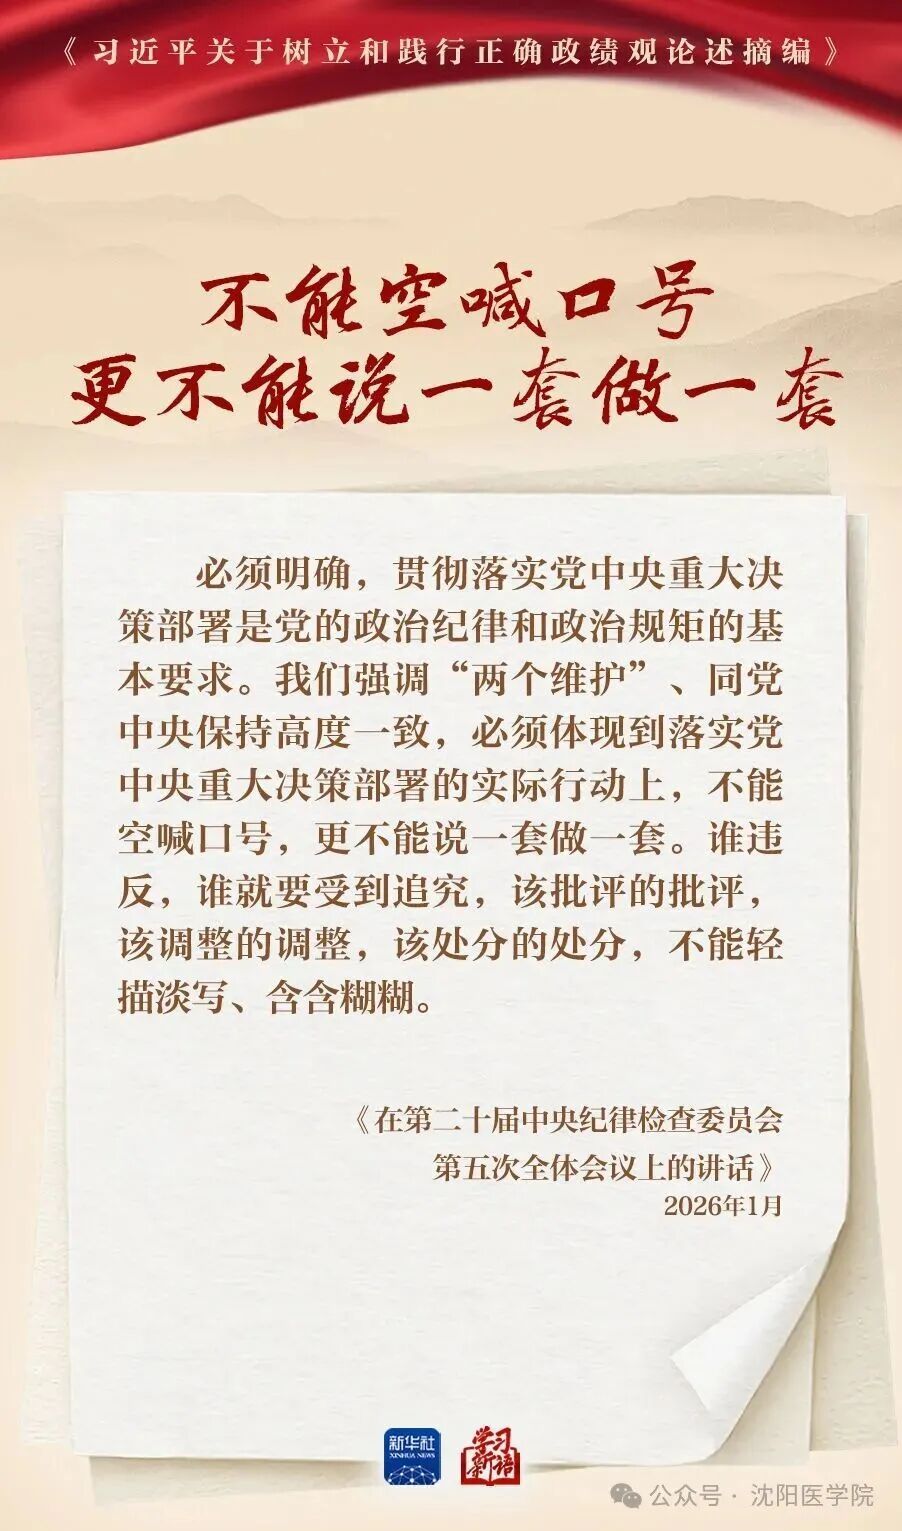 《习近平关于树立和践行正确政绩观论述摘编》
不能空喊口号
更不能说一套做一套
必须明确，贯彻落实党中央重大决
策部署是党的政治纪律和政治规矩的基
本要求。我们强调“两个维护”、同党
中央保持高度一致，必须体现到落实党
中央重大决策部署的实际行动上，不能
空喊口号，更不能说一套做一套。谁违
反，谁就要受到追究，该批评的批评，
该调整的调整，该处分的处分，不能轻
描淡写、含含糊糊。
《在第二十届中央纪律检查委员会
第五次全体会议上的讲话》
2026年1月
新华社
XINHUA NEWS
学习
新语
公众号 · 沈阳医学院